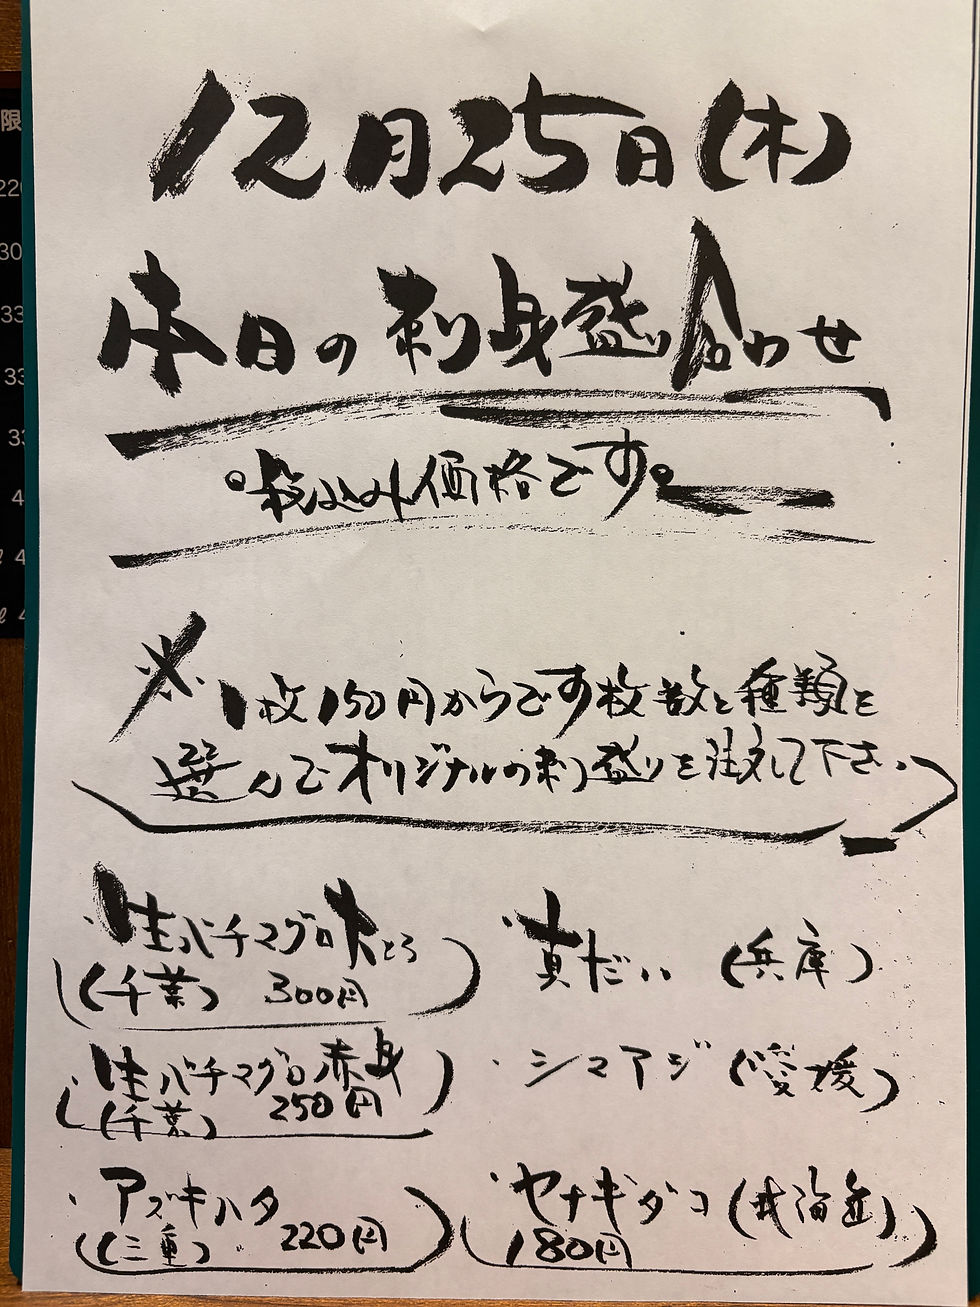 12月25日(木)
本日の刺身盛り合わせ
税込み価格です。
※1枚150円からです枚数と種類を
選んでオリジナルの刺し盛りを注文して下さい
・生バチマグロ大とろ
(千葉) 300円
・生バチマグロ赤身
(千葉) 250円
・アズキハタ
(三重) 220円
・真だい (兵庫)
・シマアジ (愛媛)
・ヤナギダコ (北海道)
180円
限
30
33
33